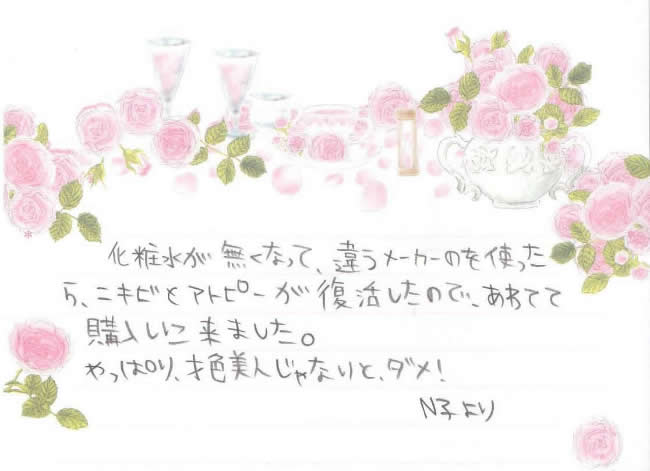 化粧水が無くなって、違うメーカーのを使った
ら、ニキビとアトピーが復活したので、あわてて
購入しに来ました。
やっぱり、才色美人じゃないと、ダメ!
N子より